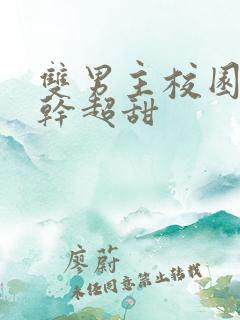 雙男主校園
幹超甜
廖蔚
未经同意禁止转载